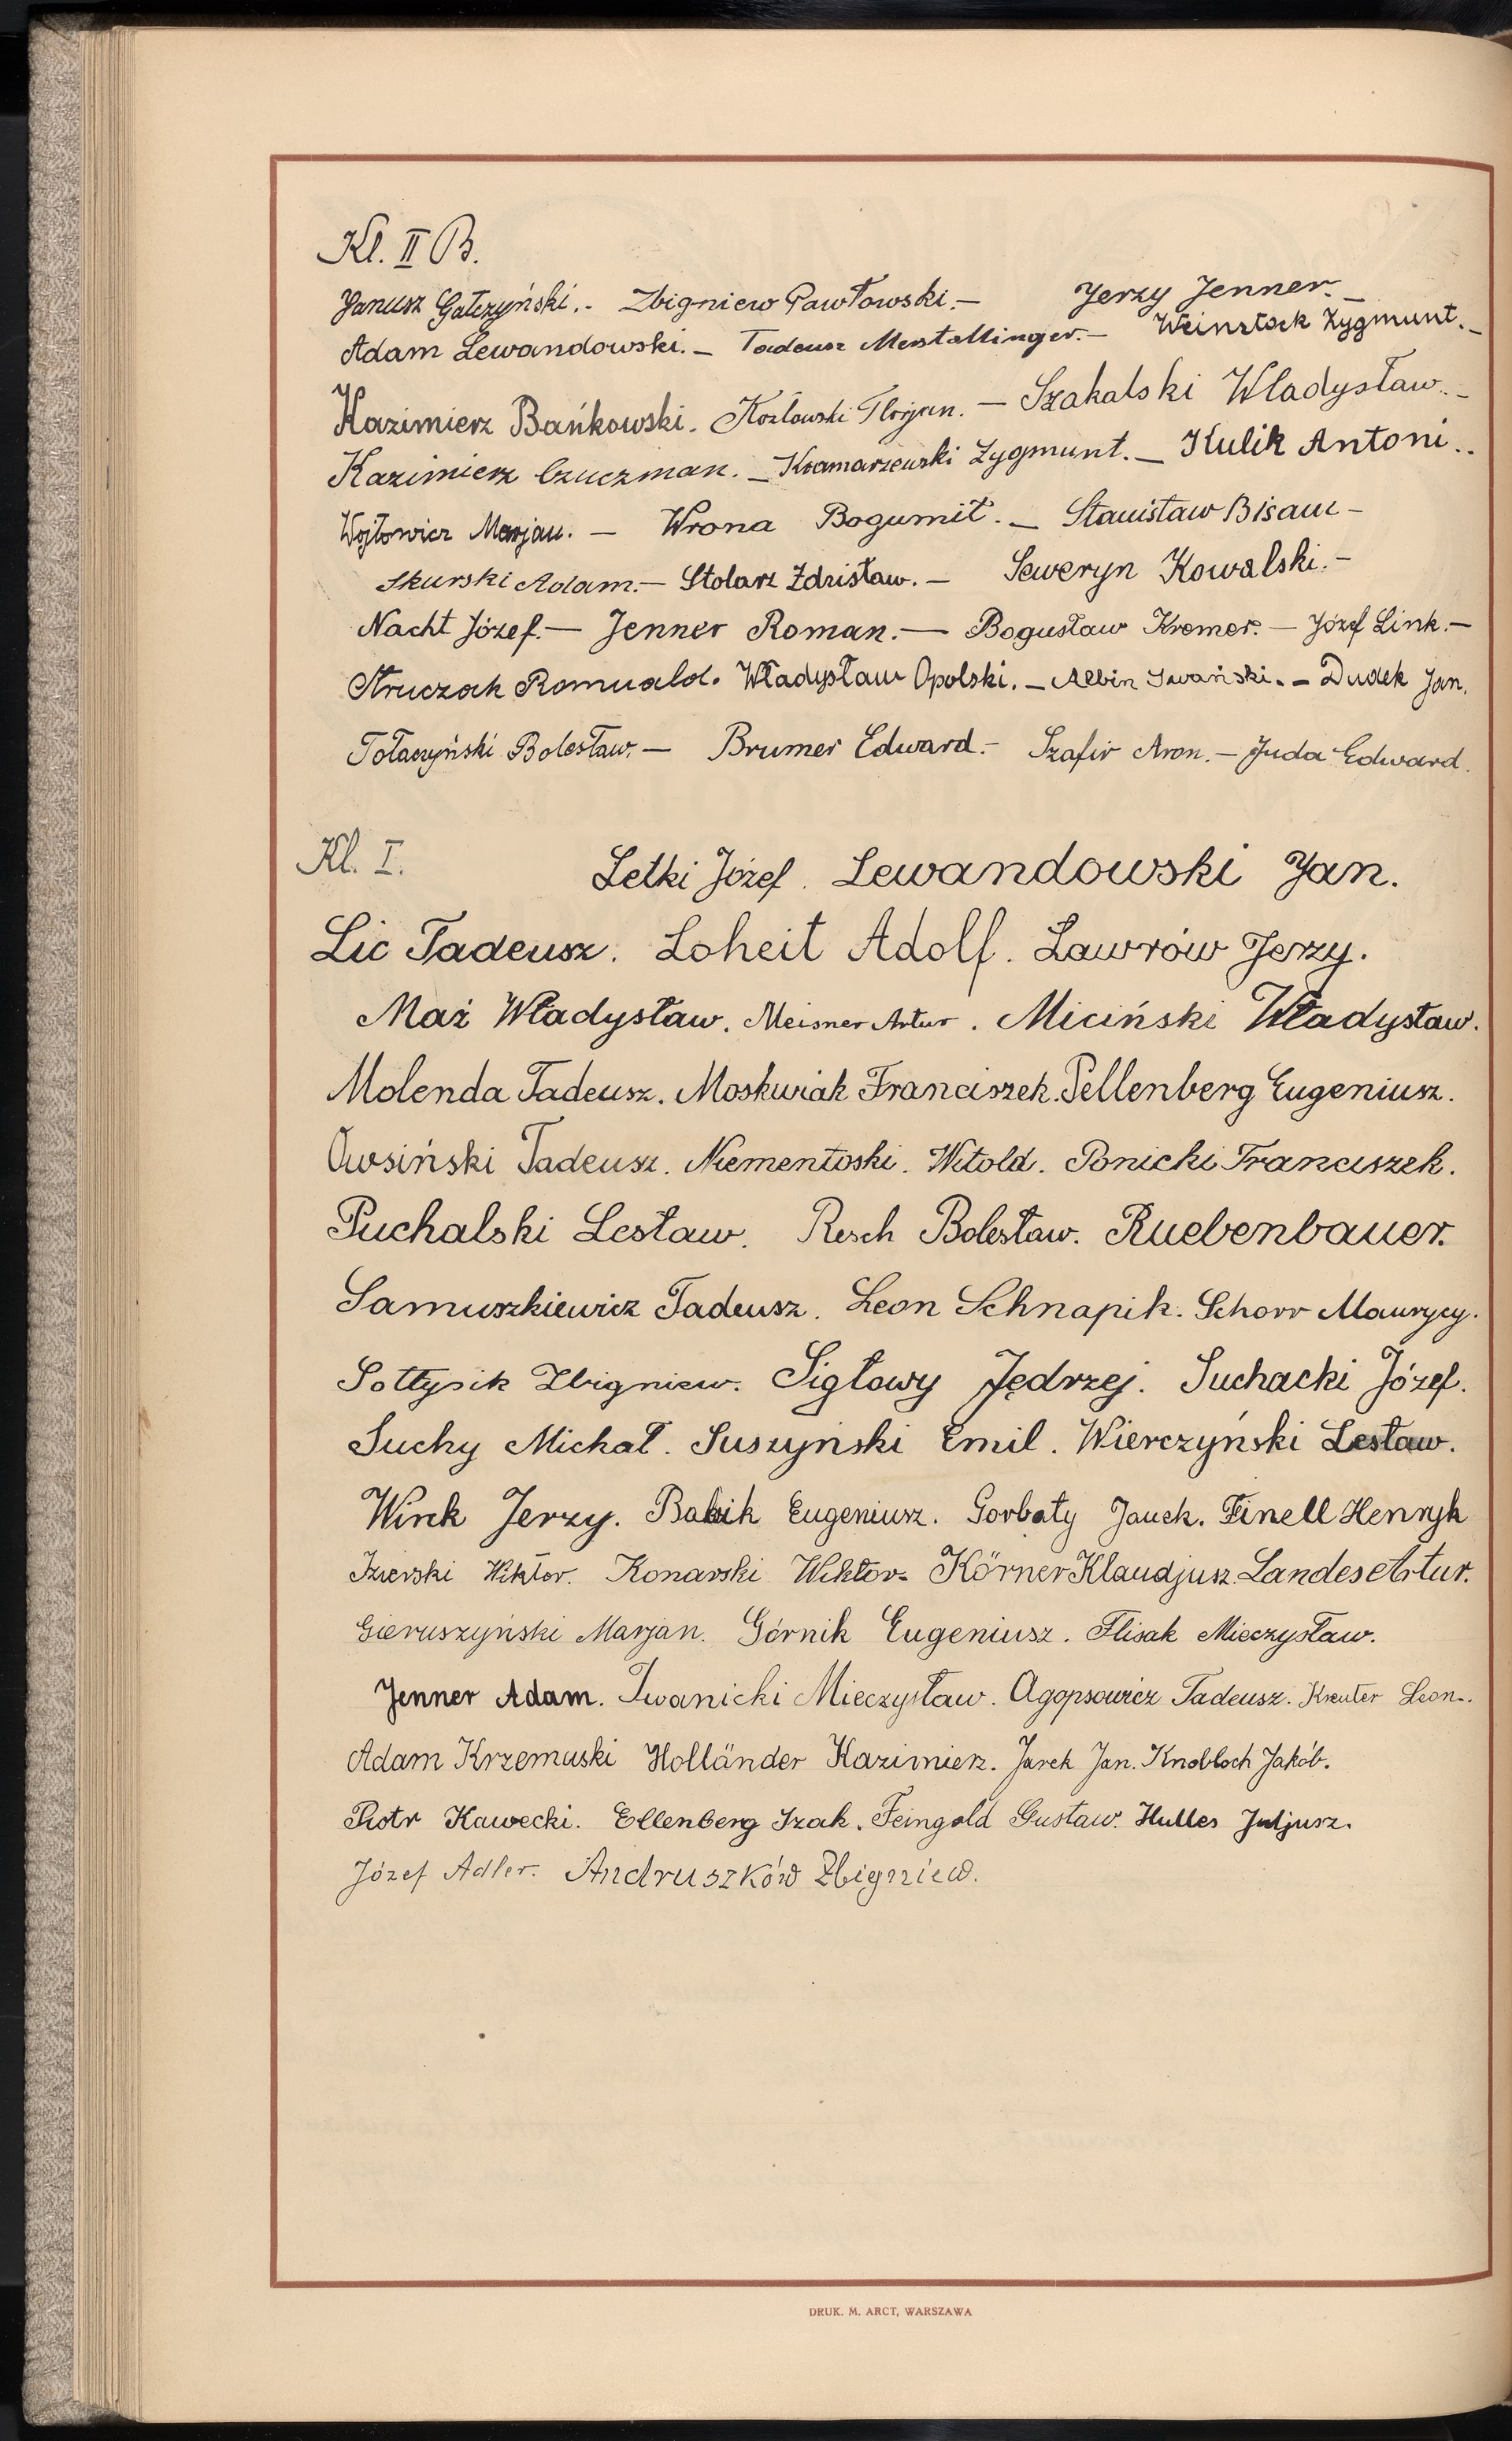 Kl. II B.
Janusz Gałczyński.- Zbigniew Pawłowski.— Jerzy Jenner.—
Adam Lewandowski.— Tadeusz Merstallinger.— Weinstock Zygmunt.—
Kazimierz Bańkowski. Kozłowski Florjan. — Szakalski Władysław.—
Kazimierz Czuczman. — Kramarzewski Zygmunt. — Kulik Antoni..
Wojtowicz Marjan. — Wrona Bogumił. — Stanisław Bisan —
Skurski Adam.— Stolarz Zdzisław. — Seweryn Kowalski.—
Nacht Józef.— Jenner Roman.— Bogusław Kremer.— Józef Link.—
Struczak Romuald. Władysław Opolski. — Albin Iwański. — Dudek Jan.
Tołaczyński Bolesław.— Brumer Edward.— Szafir Aron.— Juda Edward.
Kl. I. Letki Józef. Lewandowski Jan.
Lic Tadeusz. Loheit Adolf. Lawrów Jerzy.
Maź Władysław. Meisner Artur. Miciński Władysław.
Molenda Tadeusz. Moskwiak Franciszek. Pellenberg Eugeniusz.
Owsiński Tadeusz. Niementoski. Witold. Ponicki Franciszek.
Puchalski Lesław. Resch Bolesław. Ruebenbauer.
Samuszkiewicz Tadeusz. Leon Schnapik. Schorr Maurycy.
Sołtysik Zbigniew. Sigłowy Jędrzej. Suchacki Józef.
Suchy Michał. Suszyński Emil. Wierczyński Lesław.
Wirek Jerzy. Babik Eugeniusz. Gorbaty Janek. Finell Henryk
Izierski Wiktor. Konarski Wiktor. Körner Klaudjusz. Landes Artur.
Gieruszyński Marjan. Górnik Eugeniusz. Flisak Mieczysław.
Jenner Adam. Iwanicki Mieczysław. Agopsowicz Tadeusz. Kreuter Leon..
Adam Krzemuski Holländer Kazimierz. Jarek Jan. Knobloch Jakób.
Piotr Kawecki. Ellenberg Izak. Feingold Gustaw. Hulles Juljusz.
Józef Adler. Andruszków Zbigniew.
DRUK. M. ARCT, WARSZAWA